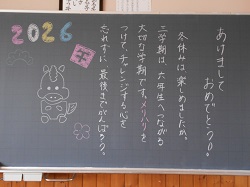 2026
午
あけまして
おめでとう!!
冬休みは楽しめましたか。
三学期は、六年生へつながる
大切な学期です。メリハリを
つけて、チャレンジする心を
忘れずに、最後までがんばろう。